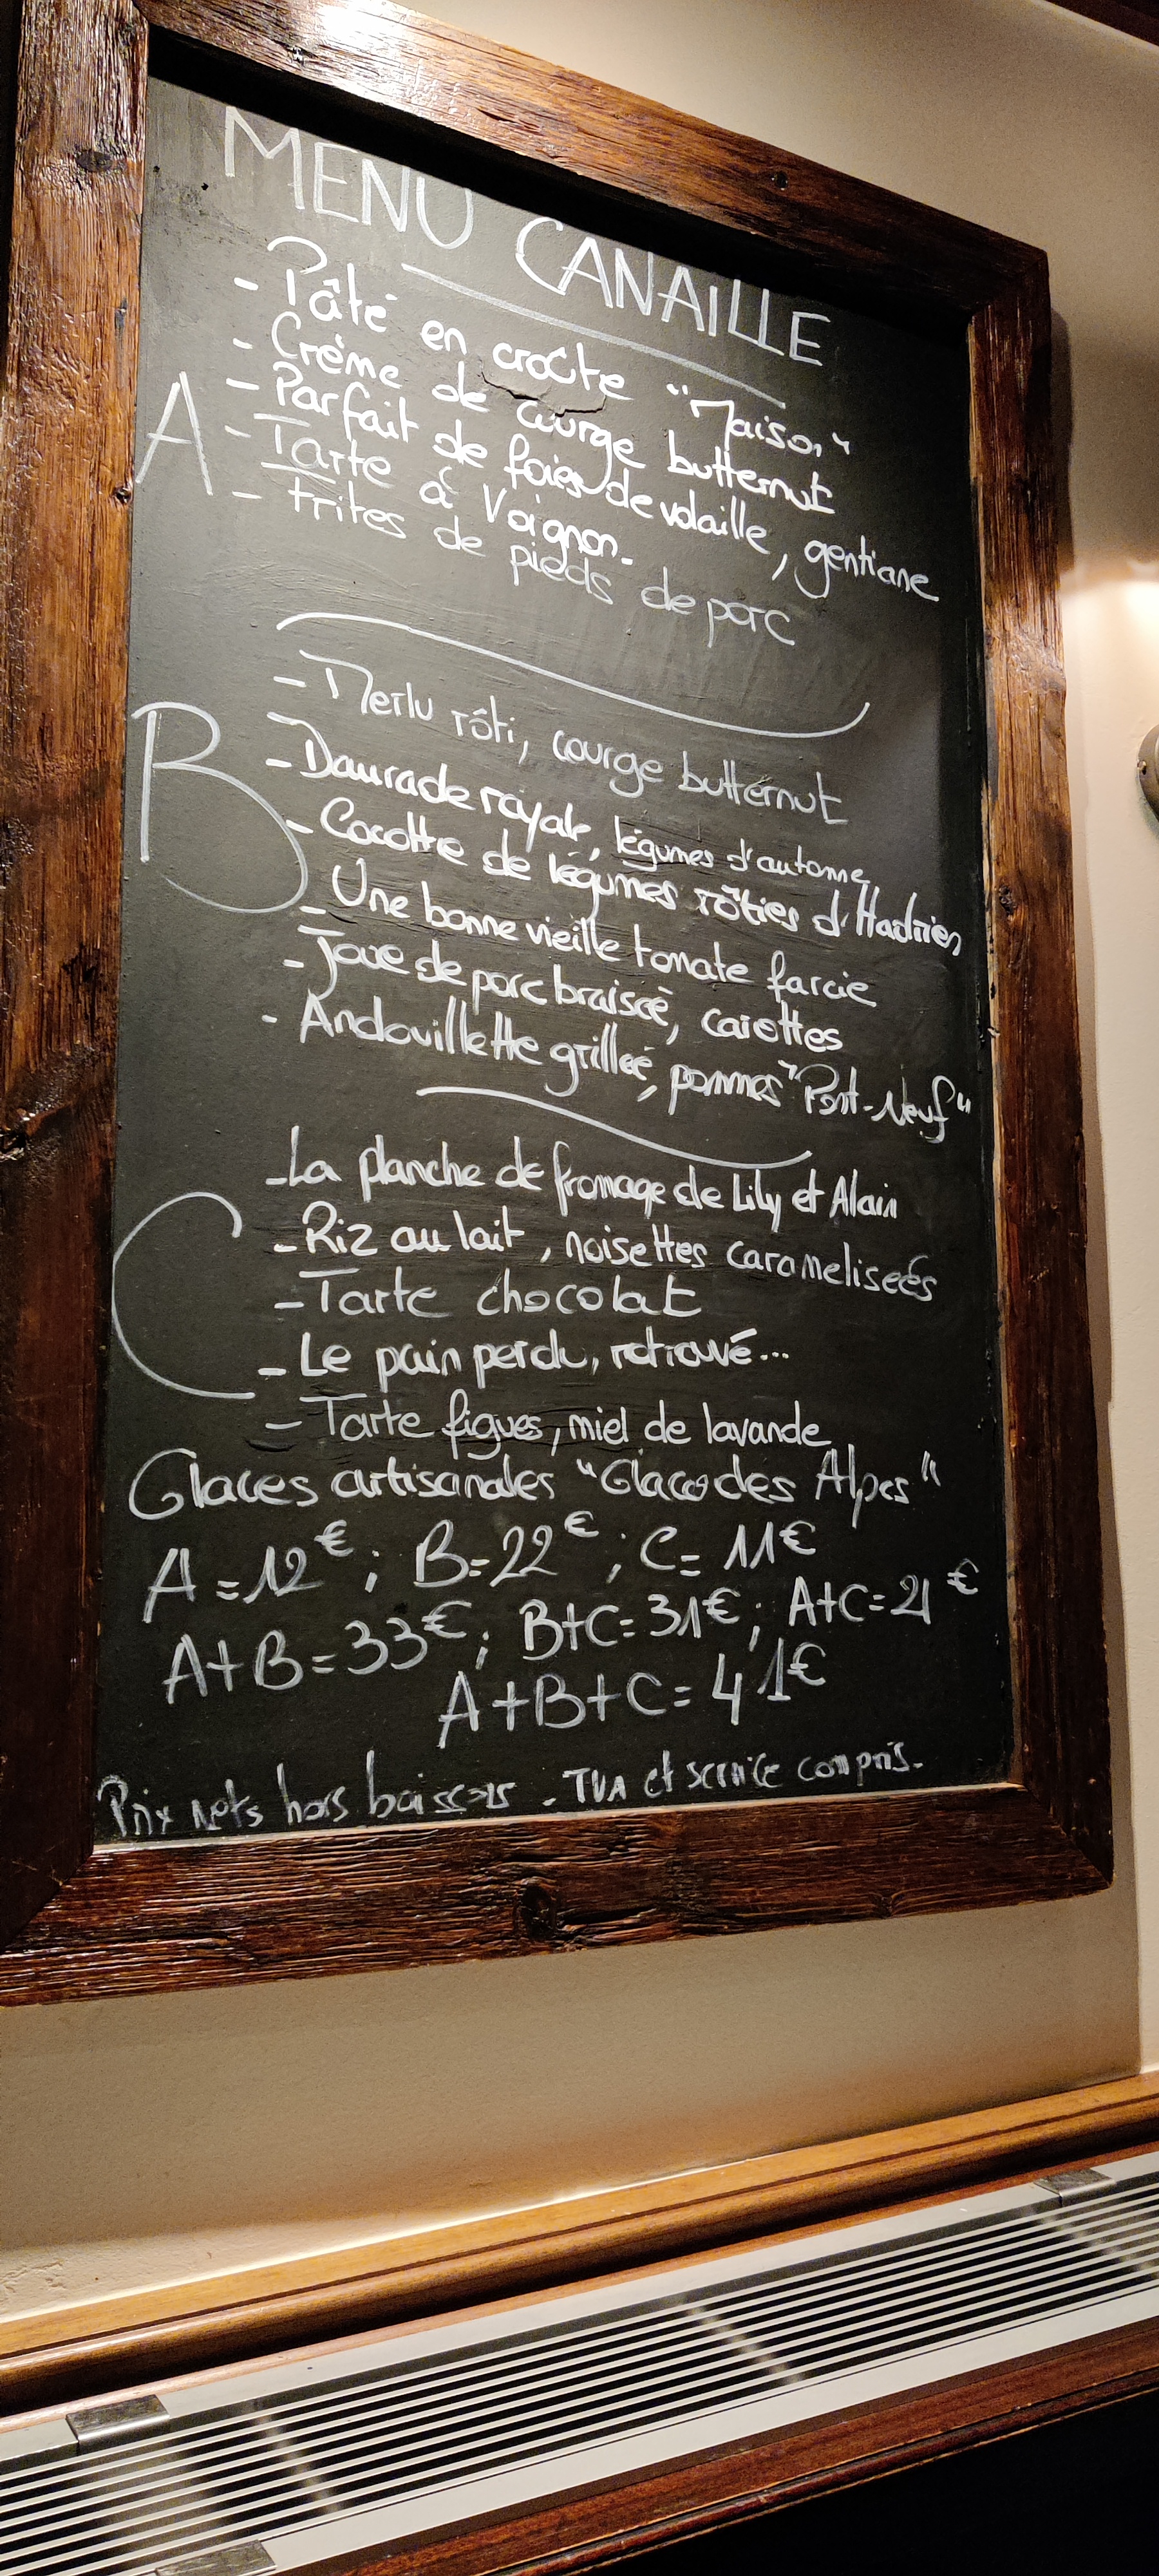 MENU CANAILLE
- Pâté en croûte "Maison"
- Crème de courge butternut
A
- Parfait de foies de volaille, gentiane
- Tarte à l'oignon.
- frites de pieds de porc
B
- Merlu rôti, courge butternut
- Daurade royale, légumes d'automne
- Cocotte de légumes rôties d'Hadrien
- Une bonne vieille tomate farcie
- Joue de porc braiseé, carottes
- Andouillette grilleé, pommes "Pont-Neuf"
C
- La planche de fromage de Lily et Alain
- Riz au lait, noisettes carameliseés
- Tarte chocolat
- Le pain perdu, retrouvé...
- Tarte figues, miel de lavande
Glaces artisanales "Glaces des Alpes"
A = 12€ ; B = 22€ ; C = 11€
A+B = 33€ ; B+C = 31€ ; A+C = 21€
A+B+C = 41€
Prix nets hors boissons - TVA et service compris.